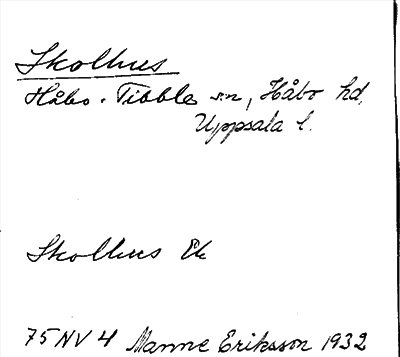 Skolhus
Håbo-Tibble sn, Håbo hd,
Uppsala l.
Skolhus Ek
75 NV 4 Manne Eriksson 1932